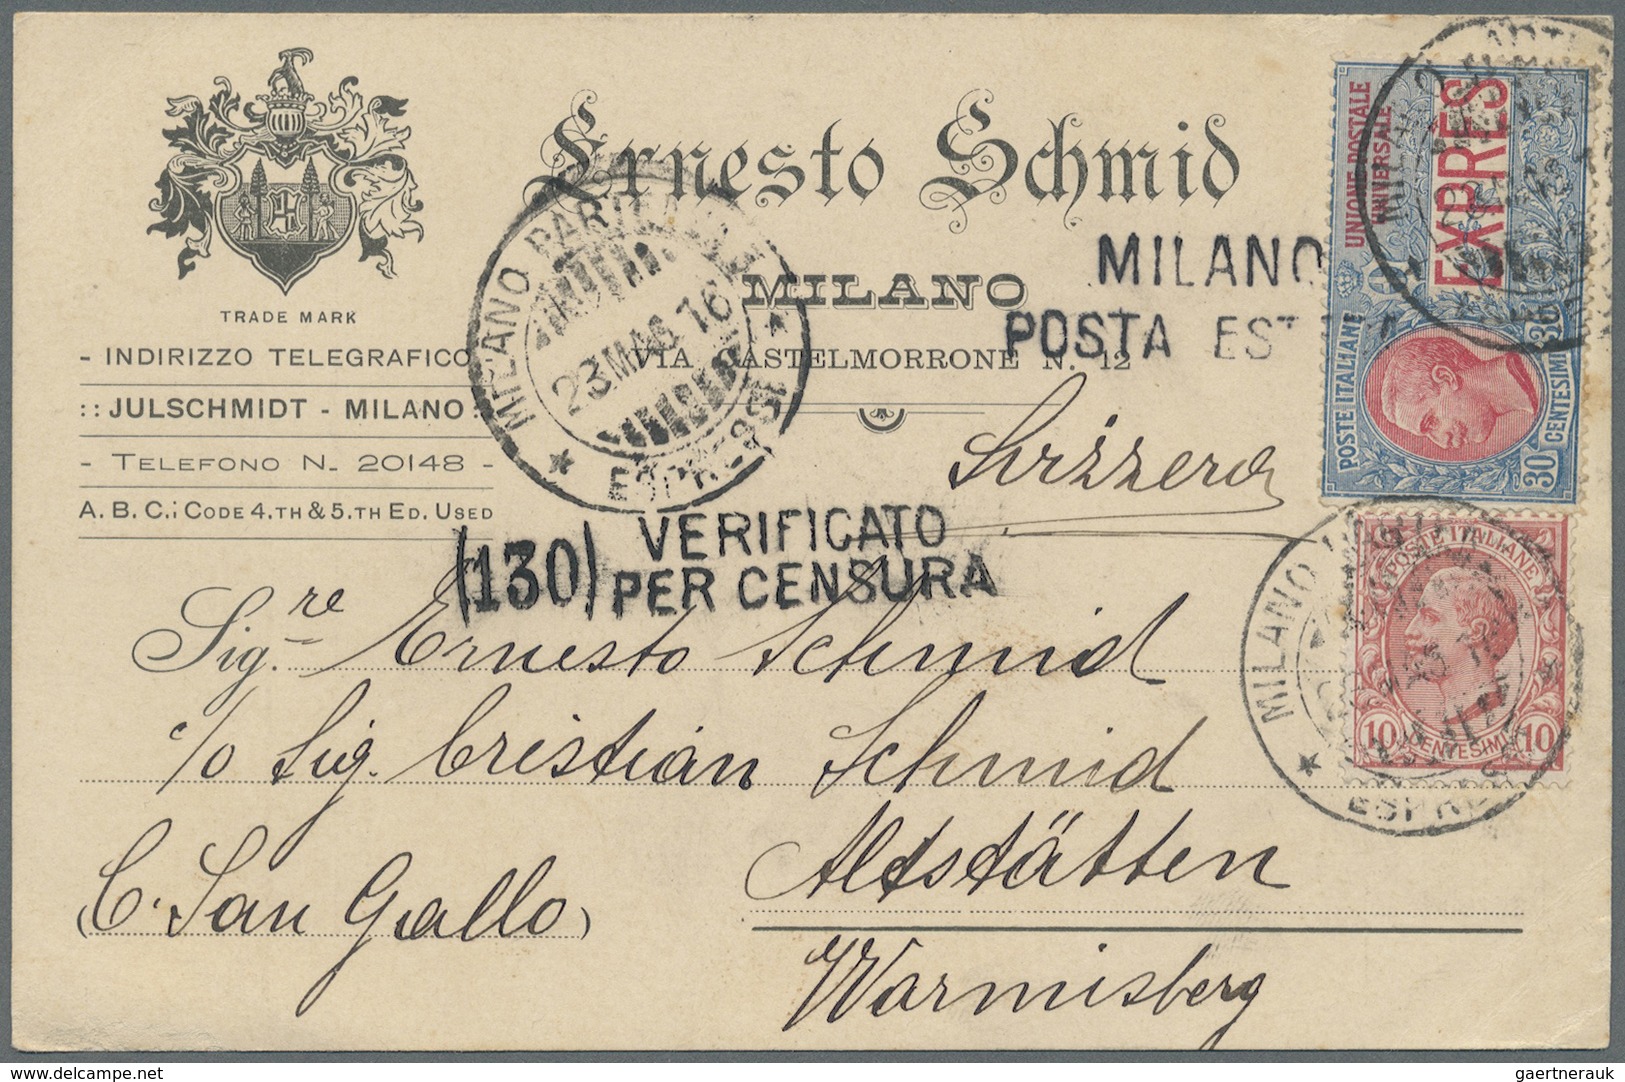 Ernesto Schmid
MILANO
VIA CASTELMORRONE N. 12
TRADE MARK
- INDIRIZZO TELEGRAFICO
:: JULSCHMIDT - MILANO :
- TELEFONO N. 20148 -
A. B. C.; CODE 4.TH & 5.TH ED. USED
MILANO PARTENZA
23 MAG 16
ESPRESSI
MILANO
POSTA EST
UNIONE POSTALE
UNIVERSALE
EXPRES
POSTE ITALIANE
30 CENTESIMI 30
Svizzera
(130) VERIFICATO
PER CENSURA
POSTE ITALIANE
10 CENTESIMI 10
MILANO
ESPRESSI
Sig.re Ernesto Schmid
c/o Sig. Cristian Schmid
Altstätten
(C. San Gallo)
Warmisberg
gaertnerauk